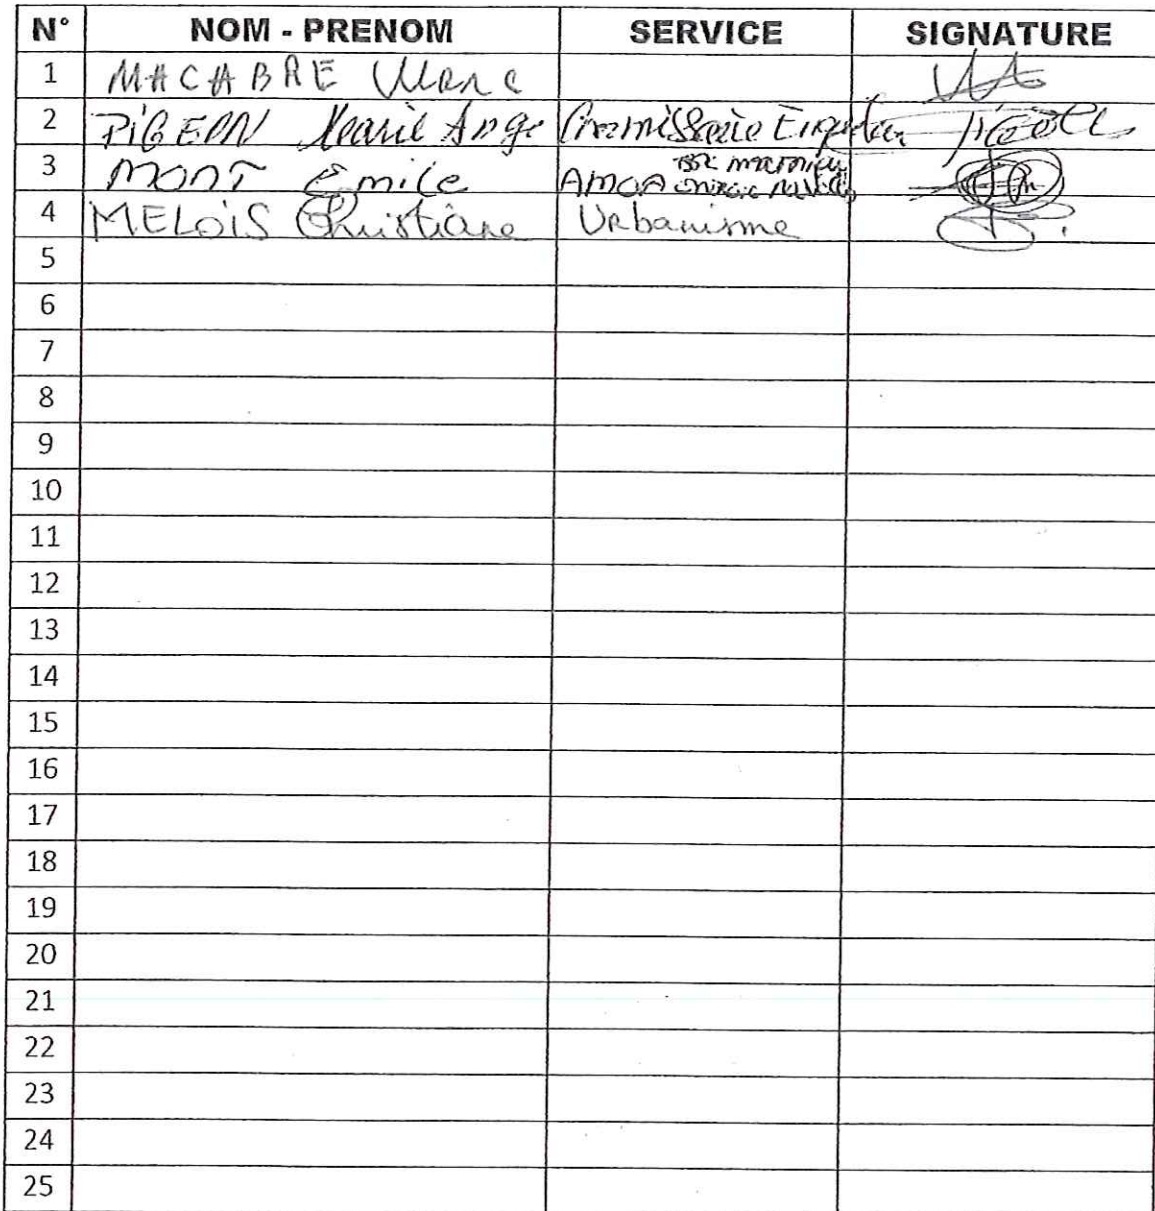 N° NOM - PRENOM SERVICE SIGNATURE
1 MACABRE Marc
2 PIGEON Marie Ange
3 MONT Emile AMOA
4 MELOIS Christiane Urbanisme
5
6
7
8
9
10
11
12
13
14
15
16
17
18
19
20
21
22
23
24
25